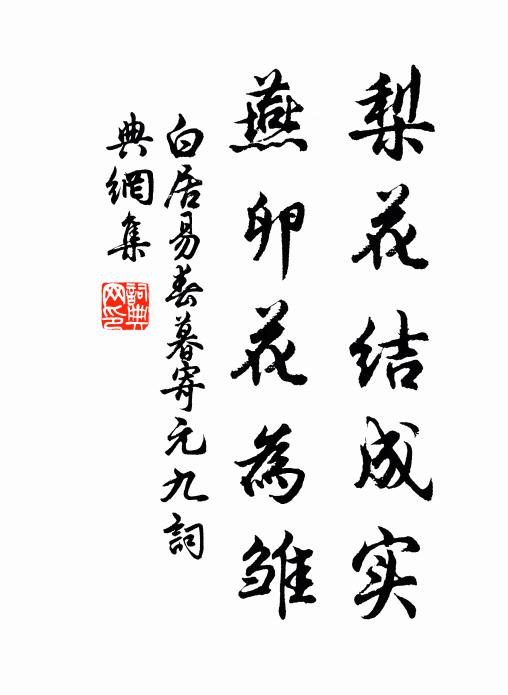 梨花结成实
燕卵花為雏
白居易春暮寄元九詞
典網集
詞典网印